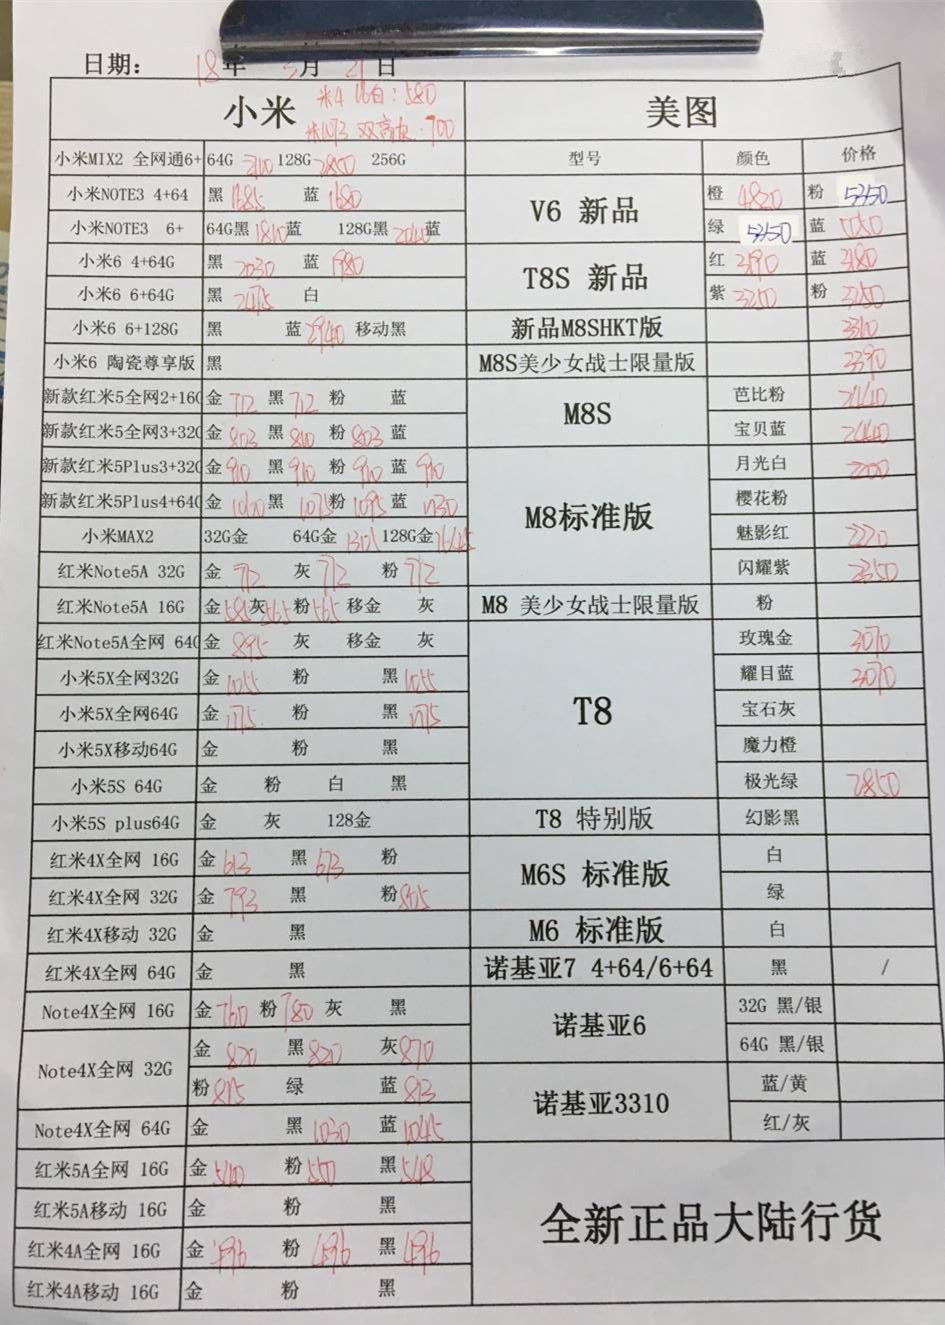 日期: 18年 3月 21日
小米 米4 16白:580
双高 700
美图
小米MIX2 全网通6+ 64G 2100 128G 2850 256G
型号 颜色 价格
小米NOTE3 4+64 黑1685 蓝1680
V6 新品 橙4820 粉5350
小米NOTE3 6+ 64G黑1810 蓝 128G黑2040 蓝
绿5350 蓝
小米6 4+64G 黑2030 蓝1980
T8S 新品 红3190 蓝3180
小米6 6+64G 黑2475 白
紫3250 粉3250
小米6 6+128G 黑 蓝2940 移动黑
新品M8SHKT版 2310
小米6 陶瓷尊享版 黑
M8S美少女战士限量版 2390
新款红米5全网2+16G 金712 黑712 粉 蓝
M8S 芭比粉 2440
新款红米5全网3+32G 金803 黑800 粉803 蓝
宝贝蓝 2440
新款红米5Plus3+32G 金910 黑910 粉910 蓝910
M8标准版 月光白 2200
新款红米5Plus4+64G 金 黑1075 粉1095 蓝1130
樱花粉
小米MAX2 32G金 64G金 128G金1645
魅影红 2220
红米Note5A 32G 金712 灰712 粉712
闪耀紫 2350
红米Note5A 16G 金585 灰565 粉565 移金 灰
M8 美少女战士限量版 粉
红米Note5A全网 64G 金895 灰 移金 灰
T8 玫瑰金 3070
小米5X全网32G 金1055 粉 黑1055
耀目蓝 3070
小米5X全网64G 金1175 粉 黑1175
宝石灰
小米5X移动64G 金 粉 黑
魔力橙
小米5S 64G 金 粉 白 黑
极光绿 2850
小米5S plus64G 金 灰 128金
T8 特别版 幻影黑
红米4X全网 16G 金673 黑673 粉
M6S 标准版 白
红米4X全网 32G 金793 黑 粉805
绿
红米4X移动 32G 金 黑
M6 标准版 白
红米4X全网 64G 金 黑
诺基亚7 4+64/6+64 黑 /
Note4X全网 16G 金760 粉780 灰 黑
诺基亚6 32G 黑/银
Note4X全网 32G 金820 黑820 灰870
64G 黑/银
粉815 绿 蓝813
诺基亚3310 蓝/黄
Note4X全网 64G 金 黑1030 蓝1045
红/灰
红米5A全网 16G 金540 粉550 黑548
红米5A移动 16G 金 粉 黑
全新正品大陆行货
红米4A全网 16G 金496 粉496 黑496
红米4A移动 16G 金 粉 黑